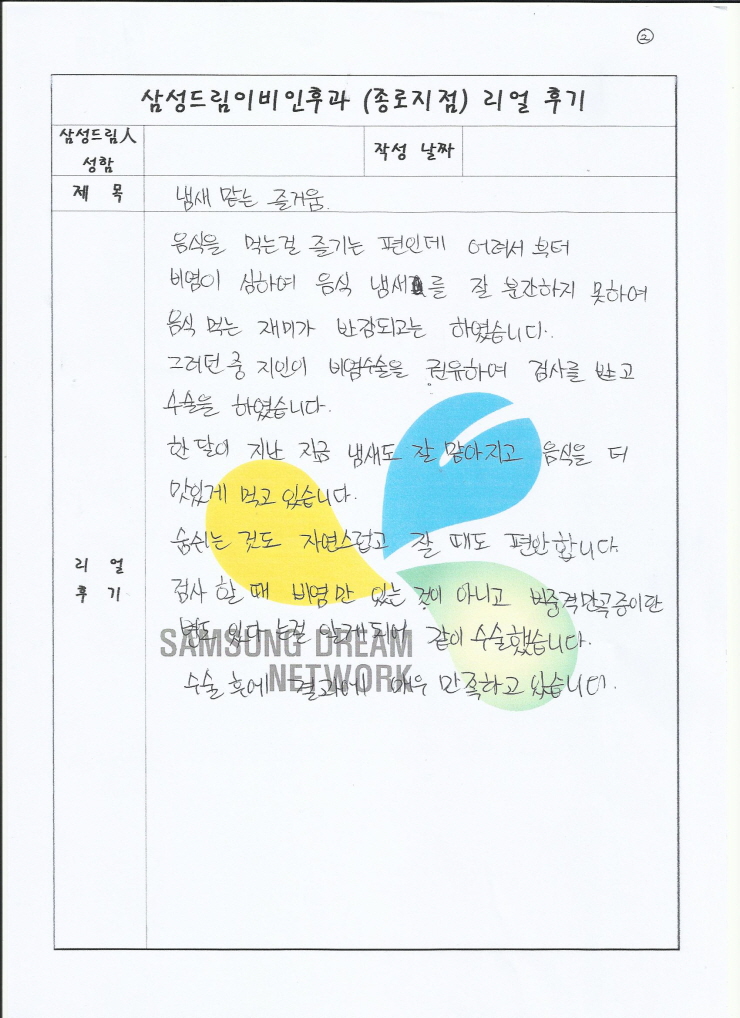 ②
삼성드림이비인후과 (종로지점) 리얼 후기
삼성드림人
성함
작성 날짜
제 목
냄새 맡는 즐거움.
음식을 먹는걸 즐기는 편인데 어려서 부터
비염이 심하여 음식 냄새를 잘 분간하지 못하여
음식 먹는 재미가 반감되고는 하였습니다.
그러던 중 지인이 비염수술을 권유하여 검사를 받고
수술을 하였습니다.
한 달이 지난 지금 냄새도 잘 맡아지고 음식을 더
맛있게 먹고 있습니다.
숨쉬는 것도 자연스럽고 잘 때도 편안합니다.
리 얼
후 기
검사 할 때 비염만 있는 것이 아니고 비중격만곡증이란
병도 있다 는걸 알게 되어 같이 수술했습니다.
수술 후에 결과에 매우 만족하고 있습니다.
SAMSUNG DREAM
NETWORK